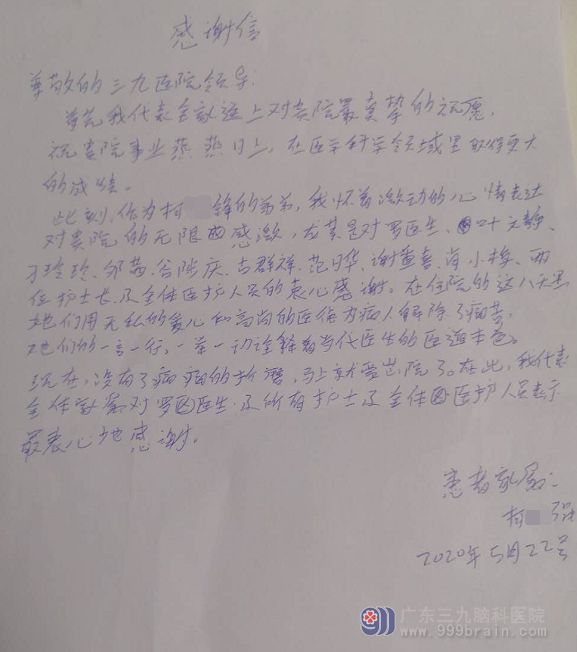 感谢信
尊敬的三九医院领导:
首先我代表全家送上对贵院最真挚的祝愿,
祝贵院事业蒸蒸日上,在医学科学领域里取得更大
的成绩。
此刻,作为柯 锋的弟弟,我怀着激动的心情表达
对贵院的无限感激,尤其是对罗医生、叶文静、
丁玲玲、邹茜、谷陆庆、古群祥、范日华、谢重喜、肖小梅、两
位护士长、及全体医护人员的衷心感谢。在住院的这八天里
她们用无私的爱心和高尚的医德为病人解除了病苦,
她们的一言一行,一举一动诠释着当代医生的医道本色。
现在,没有了病痛的折磨,马上就要出院了。在此,我代表
全体家属对罗医生及所有护士及全体医护人员表示
最衷心地感谢。
患者家属:
柯 强
2020年5月22号
广东三九脑科医院
www.999brain.com